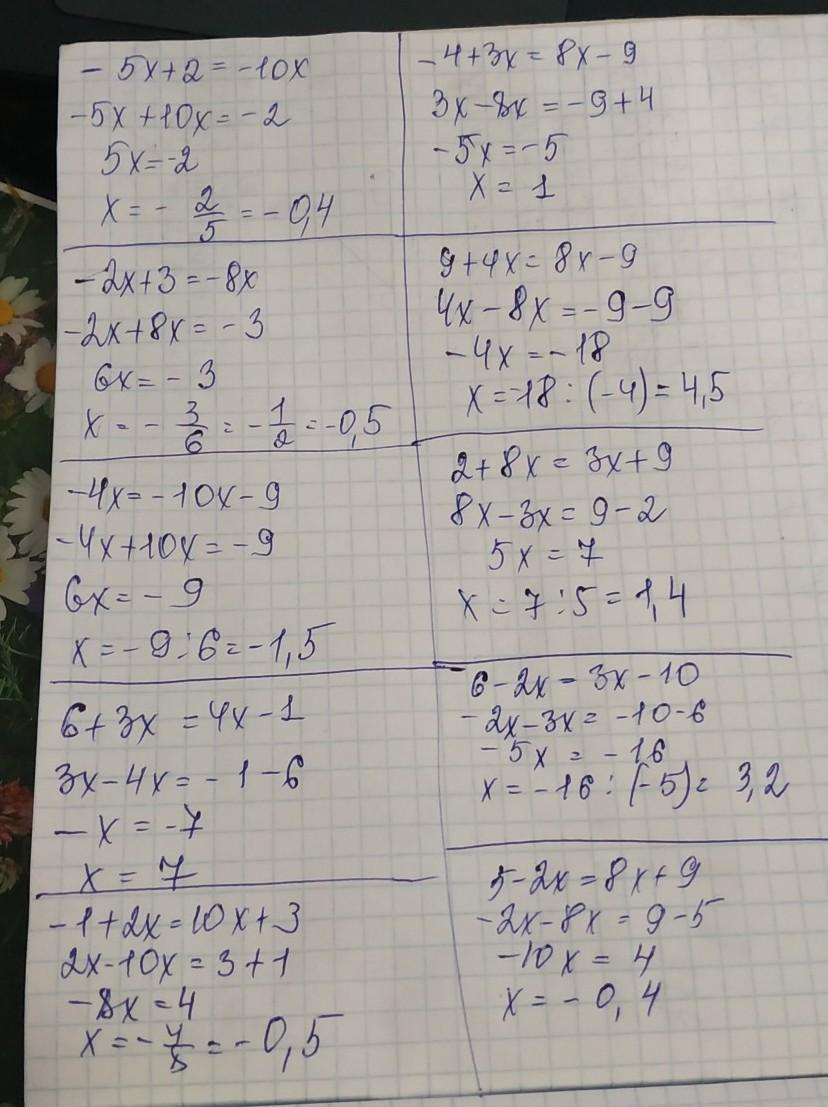 - 5x+2=-10x
-5x+10x=-2
5x=-2
x=- 2/5 =-0,4
-2x+3=-8x
-2x+8x=-3
6x=-3
x=- 3/6 =- 1/2 =-0,5
-4x=-10x-9
-4x+10x=-9
6x=-9
x=-9:6=-1,5
6+3x=4x-1
3x-4x=-1-6
-x=-7
x=7
-1+2x=10x+3
2x-10x=3+1
-8x=4
x=- 4/8 =-0,5
-4+3x=8x-9
3x-8x=-9+4
-5x=-5
x=1
9+4x=8x-9
4x-8x=-9-9
-4x=-18
x=-18:(-4)=4,5
2+8x=3x+9
8x-3x=9-2
5x=7
x=7:5=1,4
6-2x=3x-10
-2x-3x=-10-6
-5x=-16
x=-16:(-5)=3,2
5-2x=8x+9
-2x-8x=9-5
-10x=4
x=-0,4